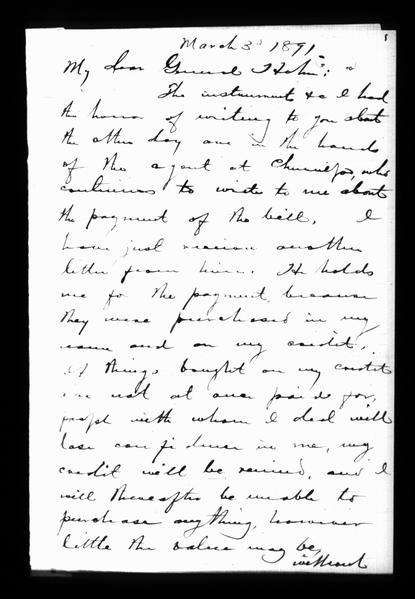 March 3d 1891
My dear General
The instruments &c I had
the honor of writing to you about
the other day are in the hands
of the agent at who
continues to write to me about
the payment of the bill. I
have just received another
letter from him. He holds
me for the payment, because
they were purchased in my
name and on my credit.
If things bought on my credit
are not at once paid for,
people with whom I deal will
lose confidence in me, my
credit will be ruined, and I
will thereafter be unable to
purchase anything, however
little the value may be,
without